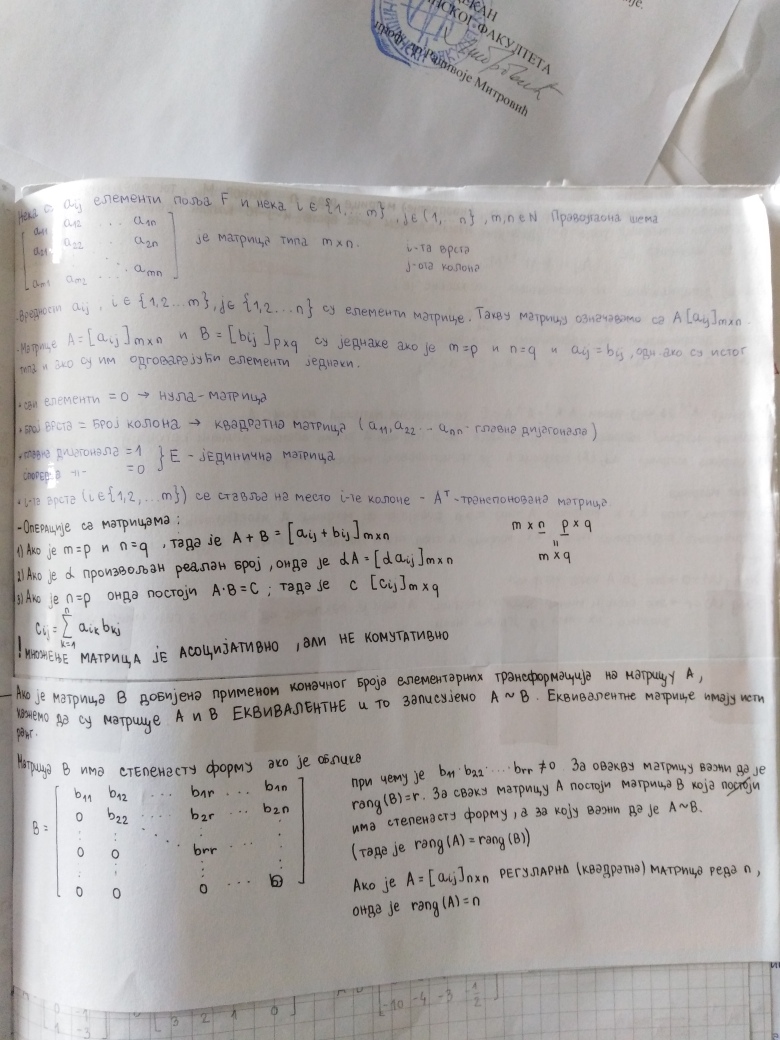 ДЕКАН
ИНСКОГ ФАКУЛТЕТА
проф. др Радивоје Митровић
Нека су aij елементи поља F и нека i ∈ {1,.. m}, j∈{1, n}, m,n ∈ N Правоугаона шема
[a11 a12 ... a1n
a21 a22 ... a2n
... 
am1 am2 ... amn] је матрица типа m×n.
i-та врста
j-ота колона
-Вредности aij, i ∈ {1,2...m}, j∈{1,2...n} су елементи матрице. Такву матрицу означавамо са A[aij]m×n.
-Матрице A=[aij]m×n и B=[bij]p×q су једнаке ако је m=p и n=q и aij=bij, одн ако су истог
типа и ако су им одговарајући елементи једнаки.
• сви елементи =0 → НУЛА-МАТРИЦА
• БРОЈ ВРСТА = БРОЈ КОЛОНА → КВАДРАТНА МАТРИЦА (a11, a22 ... ann - главна дијагонала)
• главна дијагонала =1
=0 } E - ЈЕДИНИЧНА МАТРИЦА
• i-та врста (i∈{1,2,...m}) се ставља на место i-те колоне - Aᵀ-транспонована матрица
-Операције са матрицама:
1) Ако је m=p и n=q, тада је A+B=[aij+bij]m×n
m×n p×q
=
m×q
2) Ако је α произвољан реалан број, онда је αA=[αaij]m×n
3) Ако је n=p онда постоји A·B=C ; тада је c [cij]m×q
cij=∑ⁿk=1 aik bkj
! МНОЖЕЊЕ МАТРИЦА ЈЕ АСОЦИЈАТИВНО, АЛИ НЕ КОМУТАТИВНО
Ако је матрица B добијена применом коначног броја елементарних трансформација на матрицу A,
кажемо да су матрице A и B ЕКВИВАЛЕНТНЕ и то записујемо A~B. Еквивалентне матрице имају исти
ранг.
Матрица B има СТЕПЕНАСТУ ФОРМУ ако је облика
B=[b11 b12 ... b1r ... b1n
0 b22 ... b2r ... b2n
...
0 0 brr ...
...
0 0 0 ... 0]
при чему је b11·b22·...·brr≠0. За овакву матрицу важи да је
rang(B)=r. За сваку матрицу A постоји матрица B која постоји
има степенасту форму, а за коју важи да је A~B.
(тада је rang(A)=rang(B))
Ако је A=[aij]n×n РЕГУЛАРНА (КВАДРАТНА) МАТРИЦА реда n,
онда је rang(A)=n
0 -1
1 -3
3 2 1 0
-10 -4 -3 1/2